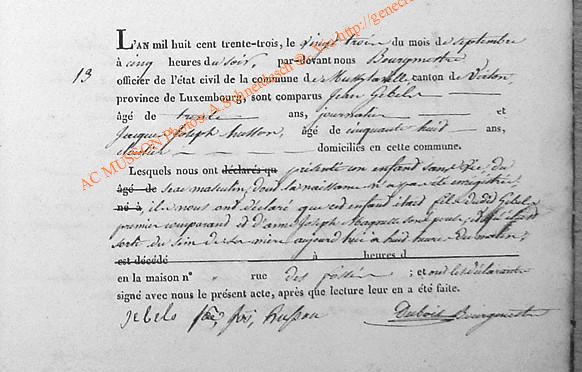 L'AN mil huit cent trente-trois, le vingt trois du mois de septembre
à cinq heures du soir, par-devant nous Bourgmestre
13
officier de l'état civil de la commune de Mussylaville canton de Virton
province de Luxembourg, sont comparus Jean Gebels
âgé de trente ans, journalier et
Jacques Joseph husson, âgé de cinquante huit ans,
cloutier domiciliés en cette commune.
Lesquels nous ont déclarés qu présenté un enfant sans vie, du
âgé de sexe masculin, dont la naissance n'a pas été enregistrée,
né à, ils nous ont déclaré que cet enfant était fils dudit Gebels
premier comparant et d'anne Joseph son épouse, et est
sorti du sein de sa mère aujourd'hui à huit heures du matin,
est décédé à heures d
en la maison n° rue des ; et ont les déclarants
signé avec nous le présent acte, après que lecture leur en a été faite.
Jebels husson Dubois Bourgmestre
AC MUSSON Photos A. Schneidesch © Via http://genec